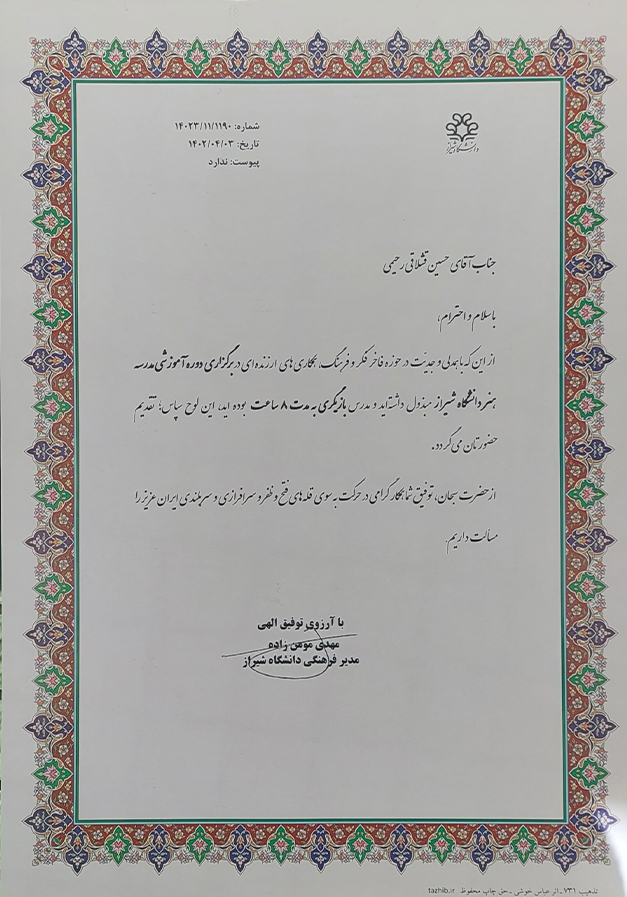 دانشگاه شیراز
شماره: ۱۴۰۲۳/۱۱/۱۱۹۰
تاریخ: ۱۴۰۲/۰۴/۰۳
پیوست: ندارد
جناب آقای حسین قشلاقی رحیمی
با سلام و احترام،
از این که با همدلی و جدیت در حوزه فاخر فکر و فرهنگ، همکاری های ارزنده ای در برگزاری دوره آموزشی مدرسه
هنر دانشگاه شیراز مبذول داشته‌اید و مدرس بازیگری به مدت ۸ ساعت بوده اید، این لوح سپاس؛ تقدیم
حضورتان می گردد.
از حضرت سبحان، توفیق شما همکار گرامی در حرکت به سوی قله های فتح و ظفر و سرافرازی و سربلندی ایران عزیز را
مسألت داریم.
با آرزوی توفیق الهی
مهدی مومن زاده
مدیر فرهنگی دانشگاه شیراز
تذهیب ۷۳۱ - اثر عباس خوشی - حق چاپ محفوظ tazhib.ir